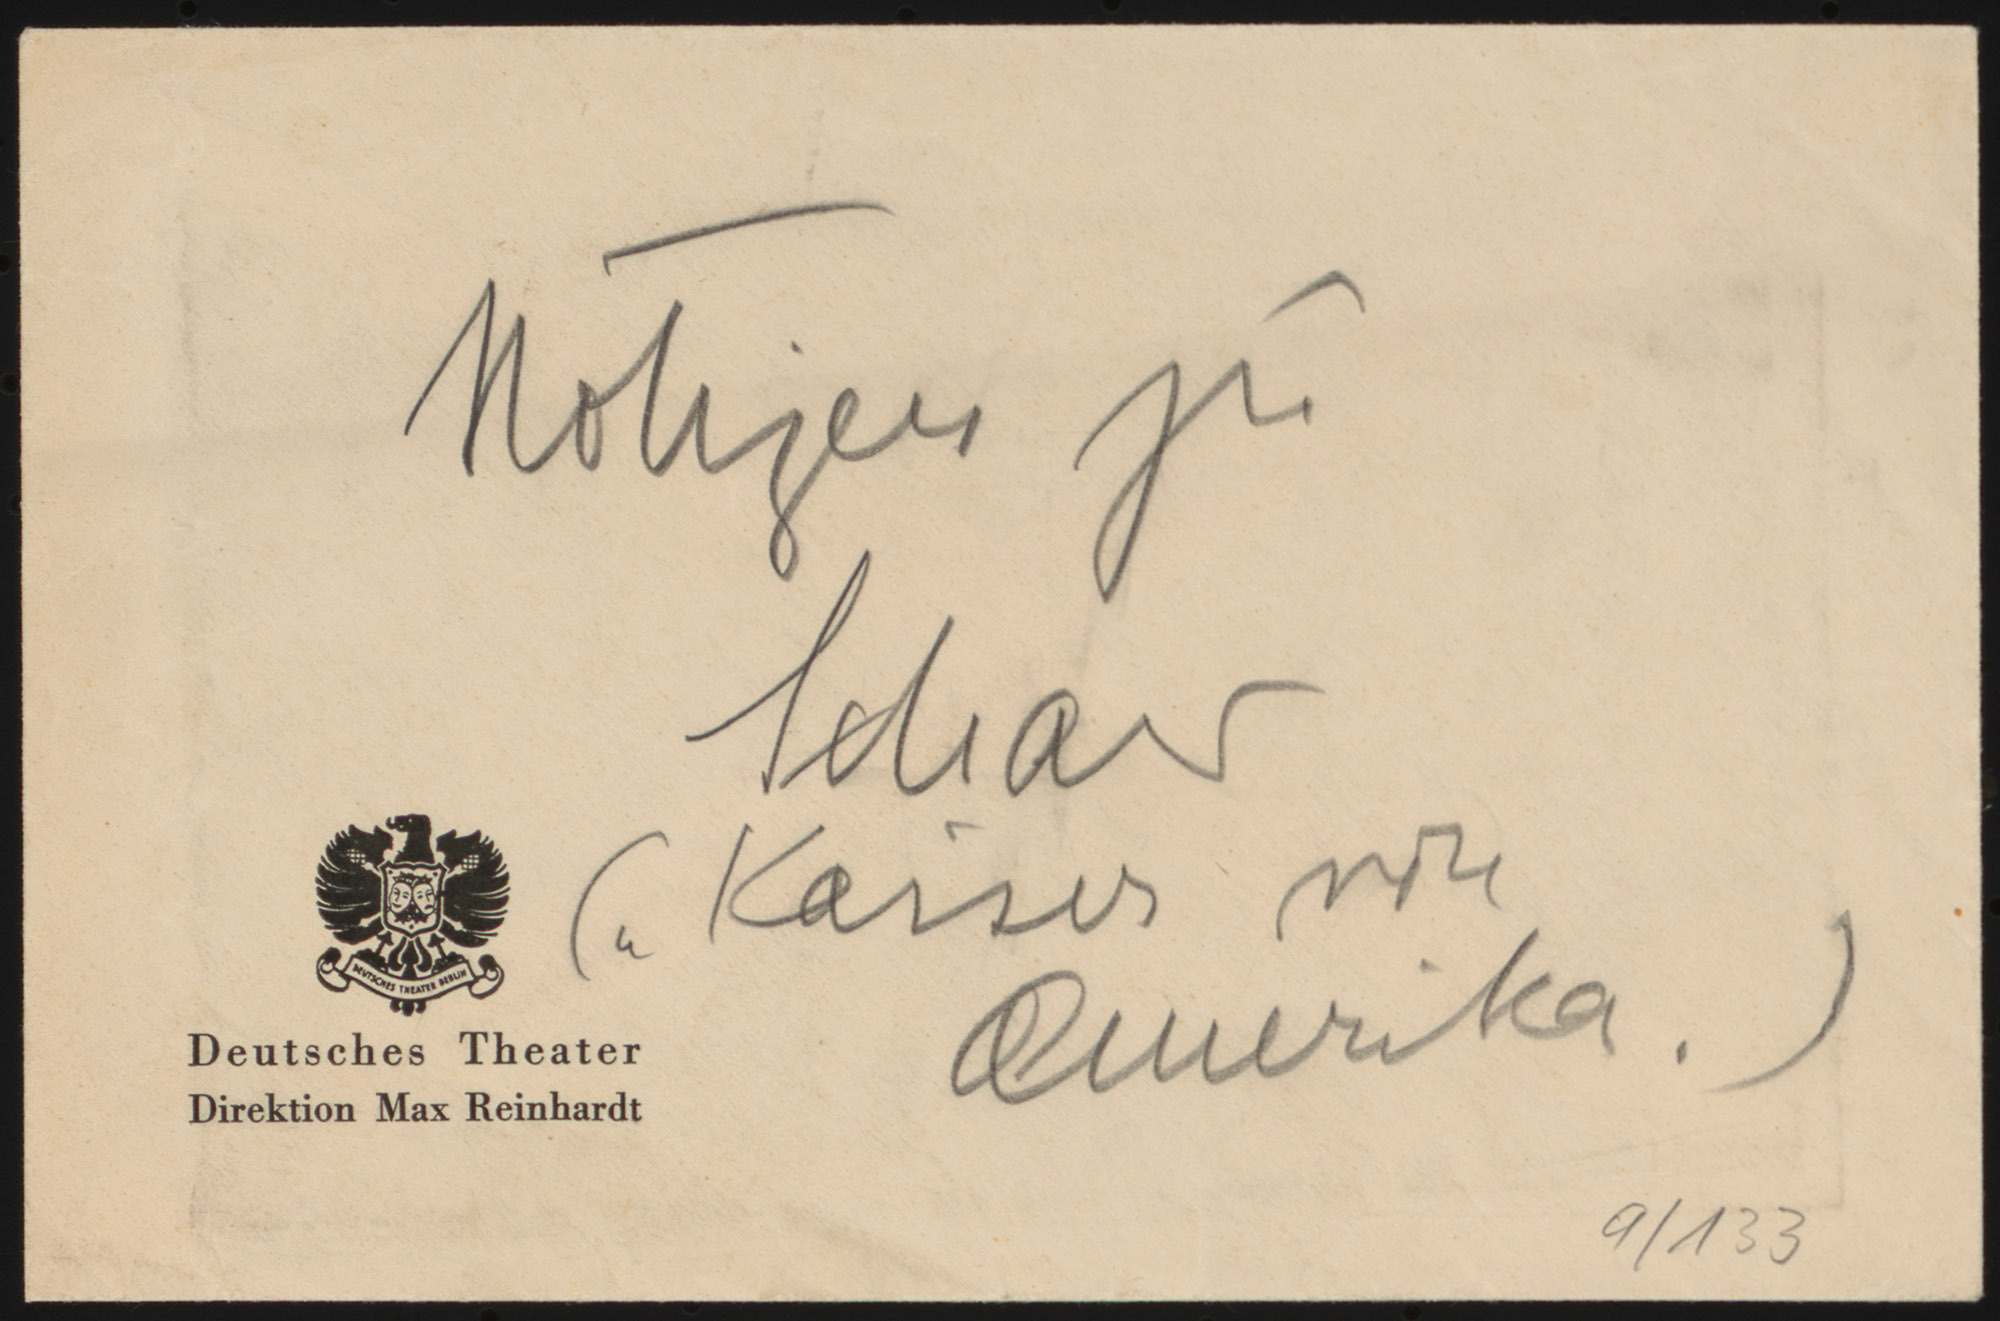 Notizen zu
Schaw
(„Kaiser von
Amerika.)
DEUTSCHES THEATER BERLIN
Deutsches Theater
Direktion Max Reinhardt
9/133